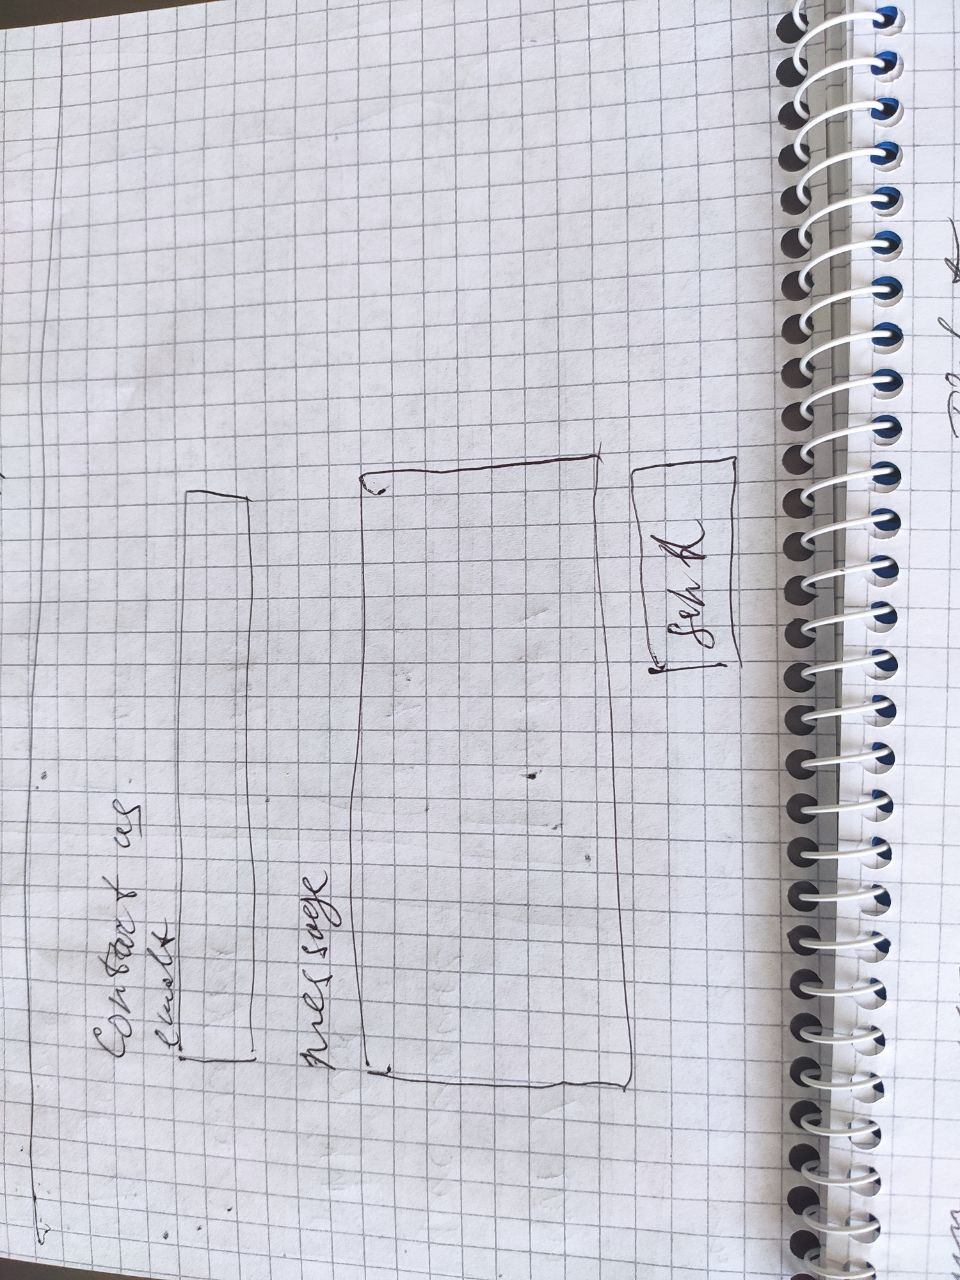 Contact us
email
message
send